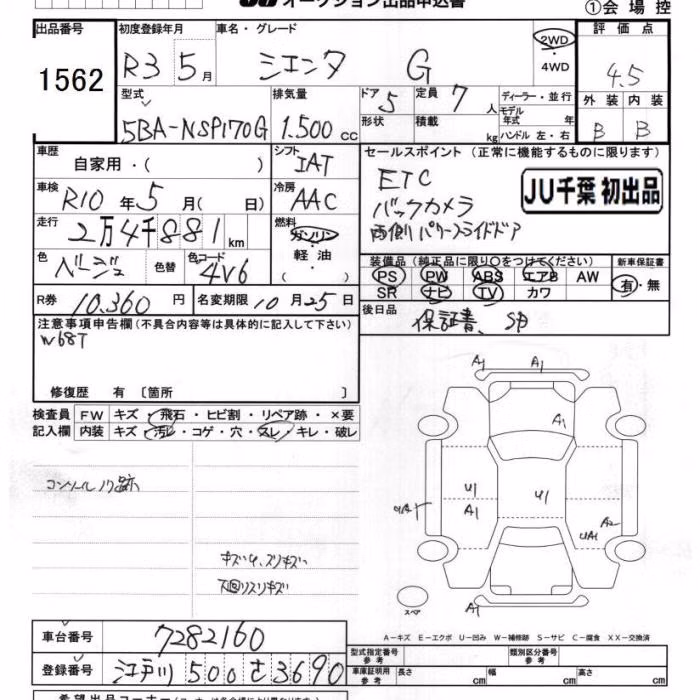 オークション出品申込書
①会場控
出品番号 1562
初度登録年月 R3 5月
車名・グレード シエンタ G
2WD・4WD
評価点 4.5
外装 B 内装 B
型式 5BA-NSP170G
排気量 1.500 cc
ドア 5 形状
定員 7人 積載 kg
ディーラー・並行
モデル年式 年式
ハンドル 左・右
車歴 自家用・( )
シフト IAT
セールスポイント (正常に機能するものに限ります)
ETC
バックカメラ
両側パワースライドドア
JU千葉 初出品
車検 R10年 5月( 日)
冷房 AAC
走行 2万4千881 km
燃料 ガソリン・軽油・( )
色 ベージュ 色替 色コード 4V6
装備品 (純正品に限り○をつけてください)
PS PW ABS エアB AW
SR ナビ TV カワ
新車保証書 有・無
R券 10.360円
名変期限 10月25日
後日品 保証書、SP
注意事項申告欄(不具合内容等は具体的に記入して下さい)
W68T
修復歴 有 〔箇所 〕
検査員記入欄
FW キズ・飛石・ヒビ割・リペア跡・×要
内装 キズ・汚レ・コゲ・穴・スレ・キレ・破レ
コンソールノリ跡
キズ小、スリキズ
下回リスリキズ
A1 A1
A1
U1 A1
U1
A2
UA1
スペア
A1
A-キズ E-エクボ U-凹み W-補修跡 S-サビ C-腐食 XX-交換済
車台番号 7282160
登録番号 江戸川 500 さ 3690
型式指定番号 参考
類別区分番号 参考
車庫証明用 参考 長さ cm 幅 cm 高さ cm
希望出品コーナー